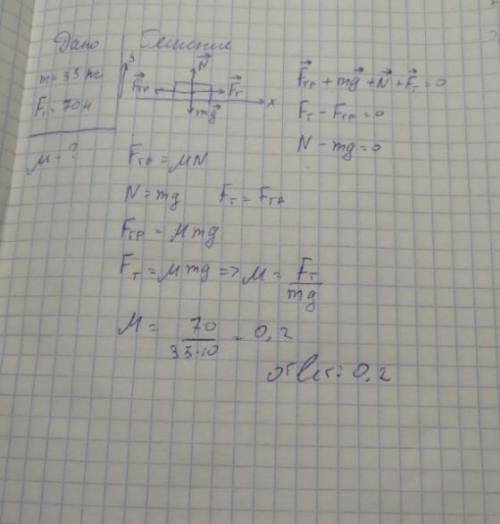 Дано
m = 35 кг
Fт = 70 Н
μ - ?
Решение
y N⃗
F⃗тр F⃗т
mg⃗ x
F⃗тр + mg⃗ + N⃗ + F⃗т = 0
Fт - Fтр = 0
N - mg = 0
Fтр = μN
N = mg Fт = Fтр
Fтр = μmg
Fт = μmg => μ = Fт/mg
μ = 70/35·10 = 0,2
ответ: 0,2